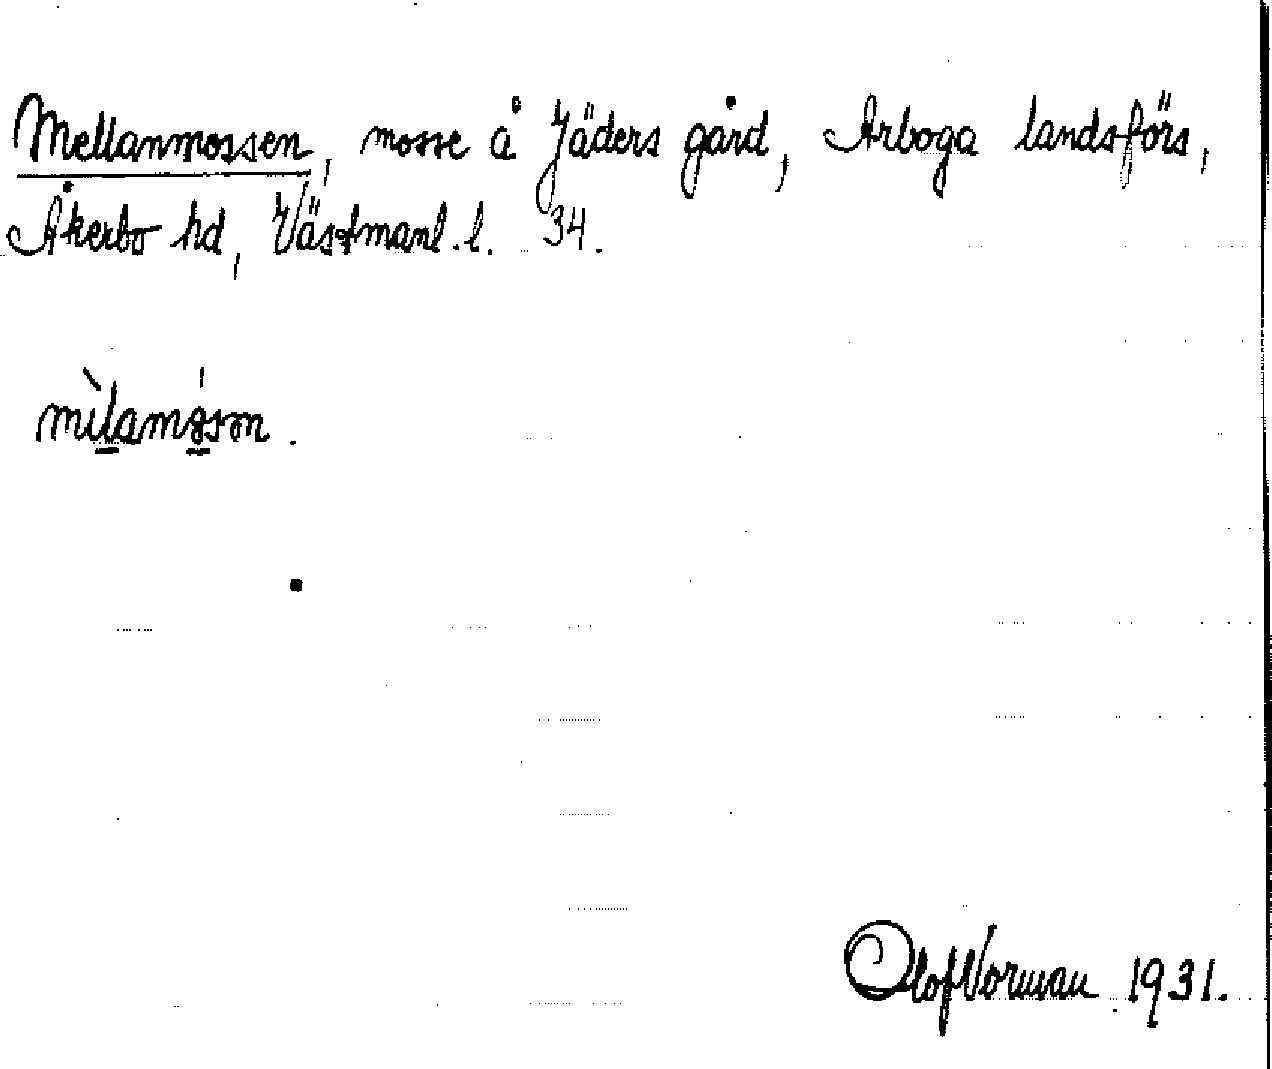 Mellanmossen, mosse å Jäders gård, Arboga landsförs,
Åkerbo hd, Västmanl. l. 34.
mìlamǿsm.
Olof Norman 1931.